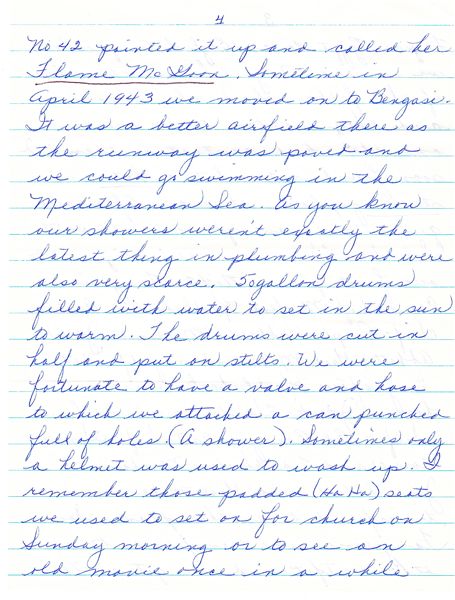 4
No 42 painted it up and called her
Flame McGoon. Sometime in
April 1943 we moved on to Bengasi.
It was a better airfield there as
the runway was paved and
we could go swimming in the
Mediterranean Sea. As you know
our showers weren't exactly the
latest thing in plumbing and were
also very scarce. 50 gallon drums
filled with water to set in the sun
to warm. The drums were cut in
half and put on stilts. We were
fortunate to have a valve and hose
to which we attached a can punched
full of holes. (A shower). Sometimes only
a helmet was used to wash up. I
remember those padded (Ha Ha) seats
we used to set on for church on
Sunday morning or to see an
old movie once in a while